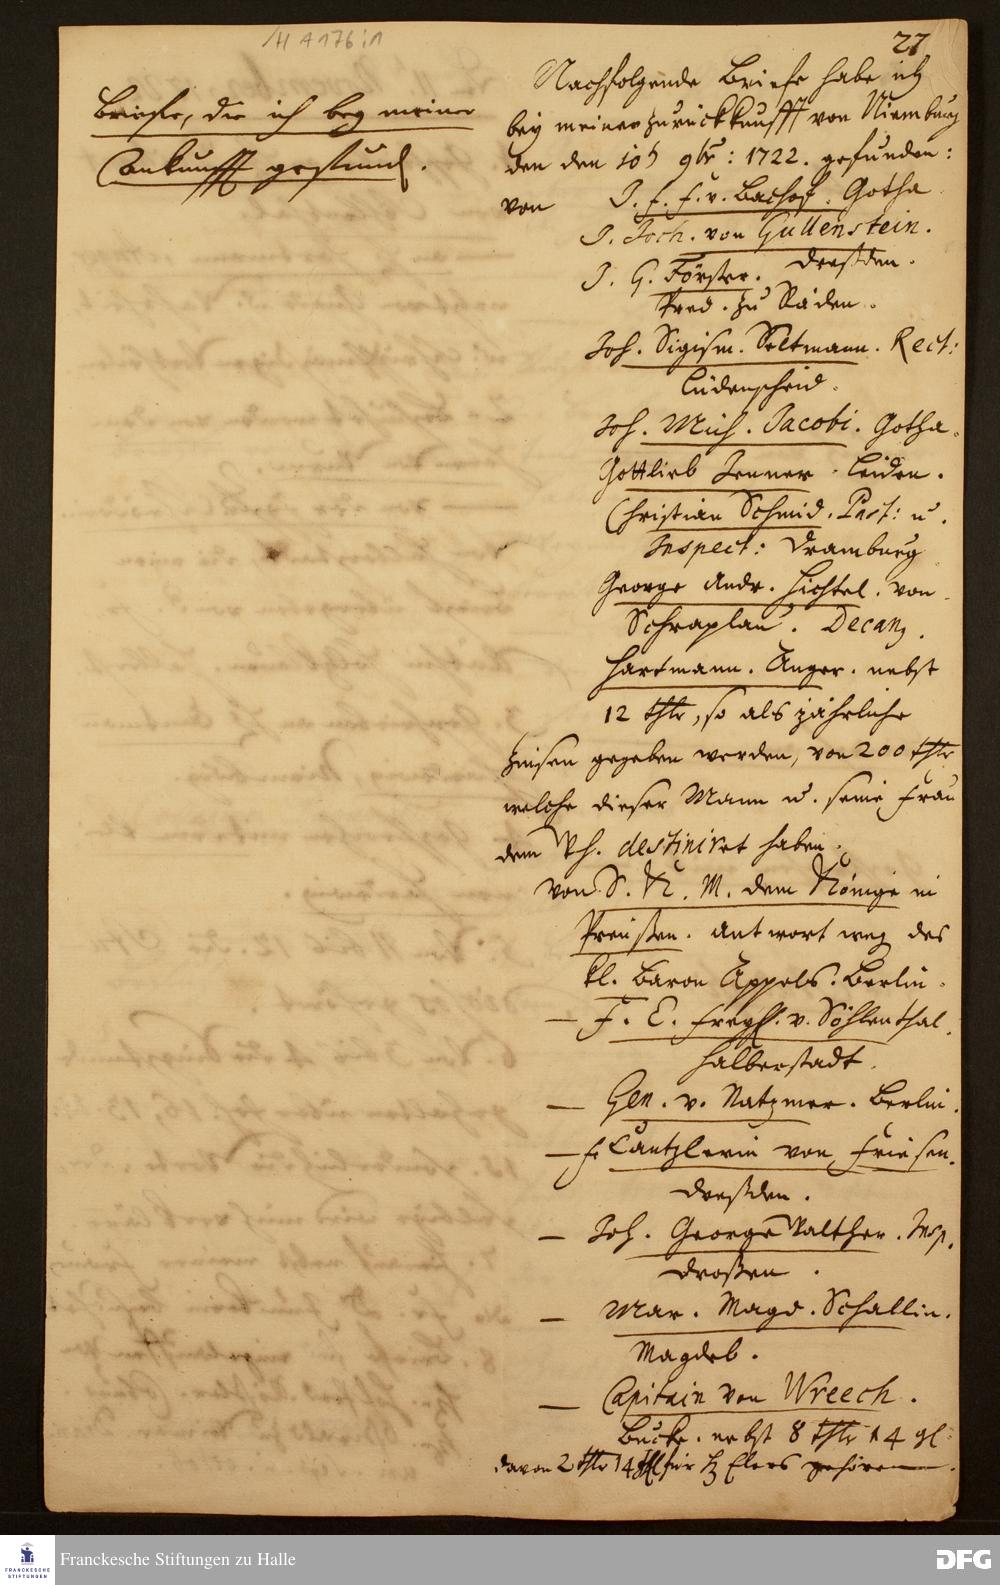 H A 176:1
27
Briefe, die ich bey meiner
Ankunfft gefund.
Nachfolgende Briefe habe ich
bey meiner zurückkunfft von Nienburg
den den 10t 9br: 1722. gefunden:
von J. F. F. v. Bachof. Gotha
J. Joch. von Gullenstein.
Dreßden.
J. G. Förster.
Pred. zu Räden.
Joh. Sigism. Seltmann. Rect:
Lüdenscheid.
Joh. Mich. Jacobi. Gotha.
Gottlieb Jenner. Leiden.
Christian Schmid. Past: u.
Inspect: Dramburg
George Andr. Hichtel. von
Schraplau. Decanq.
Hartmann. Anger. nebst
12 thlr, so als jährliche
Zinsen gegeben werden, von 200 thlr
welche dieser Mann u. seine Frau
dem Wh. destiniret haben.
von S. K. M. dem Könige in
Preussen. Antwort weg des
kl. Baron Appels. Berlin.
— F. E. Freyh. v. Söhlenthal.
Halberstadt.
— Gen. v. Natzmer. Berlin.
— Fr Cantzlerin von Friesen.
Dreßden.
— Joh. George Walther. Insp.
Droßen.
— Mar. Magd. Schallin.
Magdeb.
— Capitain von Wreech.
nebst 8 thlr 14 gl
davon 2 thlr 14 gl für H Elers gehören.
FRANCKESCHE
STIFTUNGEN
Franckesche Stiftungen zu Halle
DFG